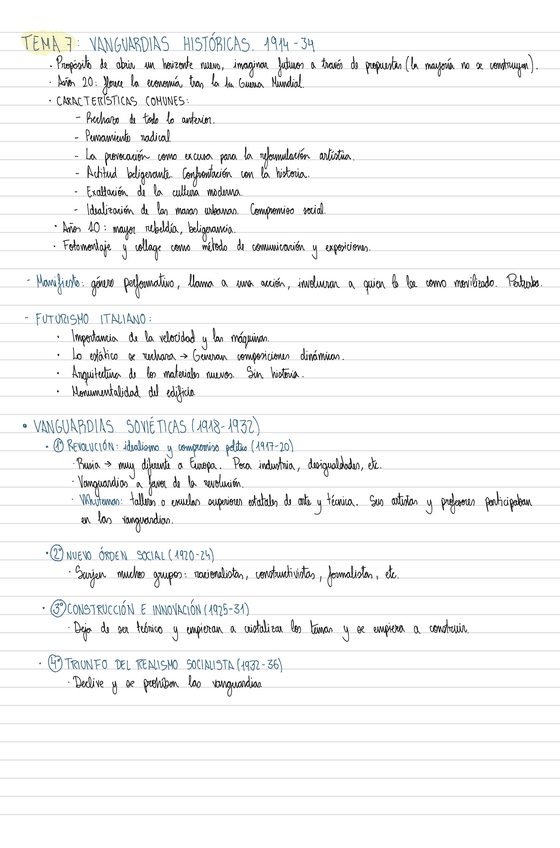 TEMA 7: VANGUARDIAS HISTÓRICAS. 1914-34
· Propósito de abrir un horizonte nuevo, imaginar futuros a través de propuestas (la mayoría no se construyen).
· Años 20: florece la economía tras la 1a Guerra Mundial.
· CARACTERÍSTICAS COMUNES:
- Rechazo de todo lo anterior.
- Pensamiento radical
- La provocación como excusa para la reformulación artística.
- Actitud beligerante. Confrontación con la historia.
- Exaltación de la cultura moderna.
- Idealización de las masas urbanas. Compromiso social.
· Años 10: mayor rebeldía, beligerancia.
· Fotomontaje y collage como método de comunicación y exposiciones.
- Manifiesto: género performativo, llama a una acción, involucran a quien lo lee como movilizado.
- FUTURISMO ITALIANO:
· Importancia de la velocidad y las máquinas.
· Lo estático se rechaza → Generan composiciones dinámicas.
· Arquitectura de los materiales nuevos. Sin historia.
· Monumentalidad del edificio
• VANGUARDIAS SOVIÉTICAS (1918-1932)
· 1º REVOLUCIÓN: idealismo y compromiso político (1917-20)
· Rusia → muy diferente a Europa. Poca industria, desigualdades, etc.
· Vanguardias a favor de la revolución.
· Vkhutemas: talleres o escuelas superiores estatales de arte y técnica. Sus artistas y profesores participaban
en las vanguardias.
· 2º NUEVO ÓRDEN SOCIAL (1920-24)
· Surjen muchos grupos: racionalistas, constructivistas, formalistas, etc.
· 3º CONSTRUCCIÓN E INNOVACIÓN (1925-31)
· Deja de ser teórico y empiezan a cristalizar los temas y se empieza a construir.
· 4º TRIUNFO DEL REALISMO SOCIALISTA (1932-36)
· Declive y se prohiben las vanguardias